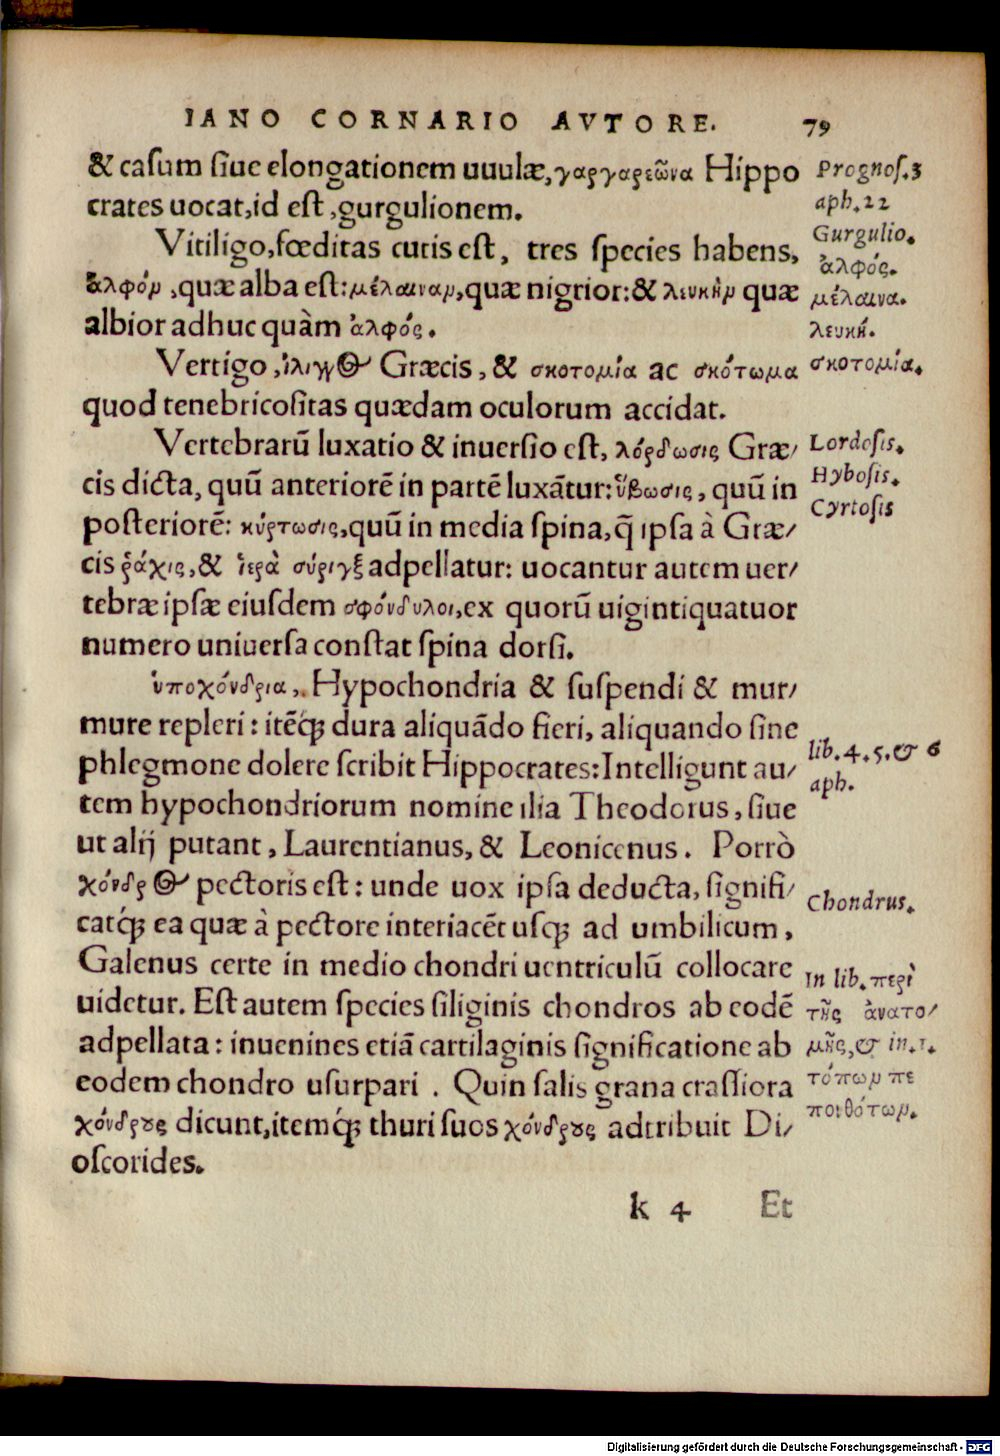 IANO CORNARIO AVTORE. 79
& casum siue elongationem uuulæ, γαργαρεῶνα Hippo
crates uocat, id est, gurgulionem.
Vitiligo, fœditas cutis est, tres species habens,
ἀλφόν, quæ alba est: μέλαιναν, quæ nigrior: & λευκὴν quæ
albior adhuc quàm ἀλφός.
Vertigo, ἴλιγγος Græcis, & σκοτομία ac σκότωμα
quod tenebricositas quædam oculorum accidat.
Vertebrarū luxatio & inuersio est, λόρδωσις Græ/
cis dicta, quū anteriorē in partē luxātur: ὕβωσις, quū in
posteriorē: κύρτωσις, quū in media spina, q̄ ipsa à Græ/
cis ῥάχις, & ἱερὰ σύριγξ adpellatur: uocantur autem uer/
tebræ ipsæ eiusdem σφόνδυλοι, ex quorū uigintiquatuor
numero uniuersa constat spina dorsi.
ὑποχόνδρια, Hypochondria & suspendi & mur/
mure repleri: itēq́ꝫ dura aliquādo fieri, aliquando sine
phlegmone dolere scribit Hippocrates: Intelligunt au/
tem hypochondriorum nomine ilia Theodorus, siue
ut alij putant, Laurentianus, & Leonicenus. Porrò
χόνδρος pectoris est: unde uox ipsa deducta, signifi/
catq́ꝫ ea quæ à pectore interiacēt usqꝫ ad umbilicum,
Galenus certe in medio chondri uentriculū collocare
uidetur. Est autem species siliginis chondros ab eodē
adpellata: inuenines etiā cartilaginis significatione ab
eodem chondro usurpari. Quin salis grana crassiora
χόνδρους dicunt, itemq́ꝫ thuri suos χόνδρους adtribuit Di/
oscorides.
k 4 Et
Prognos. 3
aph. 22
Gurgulio.
ἀλφός.
μέλαινα.
λευκή.
σκοτομία.
Lordosis.
Hybosis.
Cyrtosis
lib. 4. 5. & 6
aph.
Chondrus.
In lib. περὶ
τῆς ἀνατο/
μῆς, & in. 1.
τόπων πε
πονθότων.
Digitalisierung gefördert durch die Deutsche Forschungsgemeinschaft - DFG